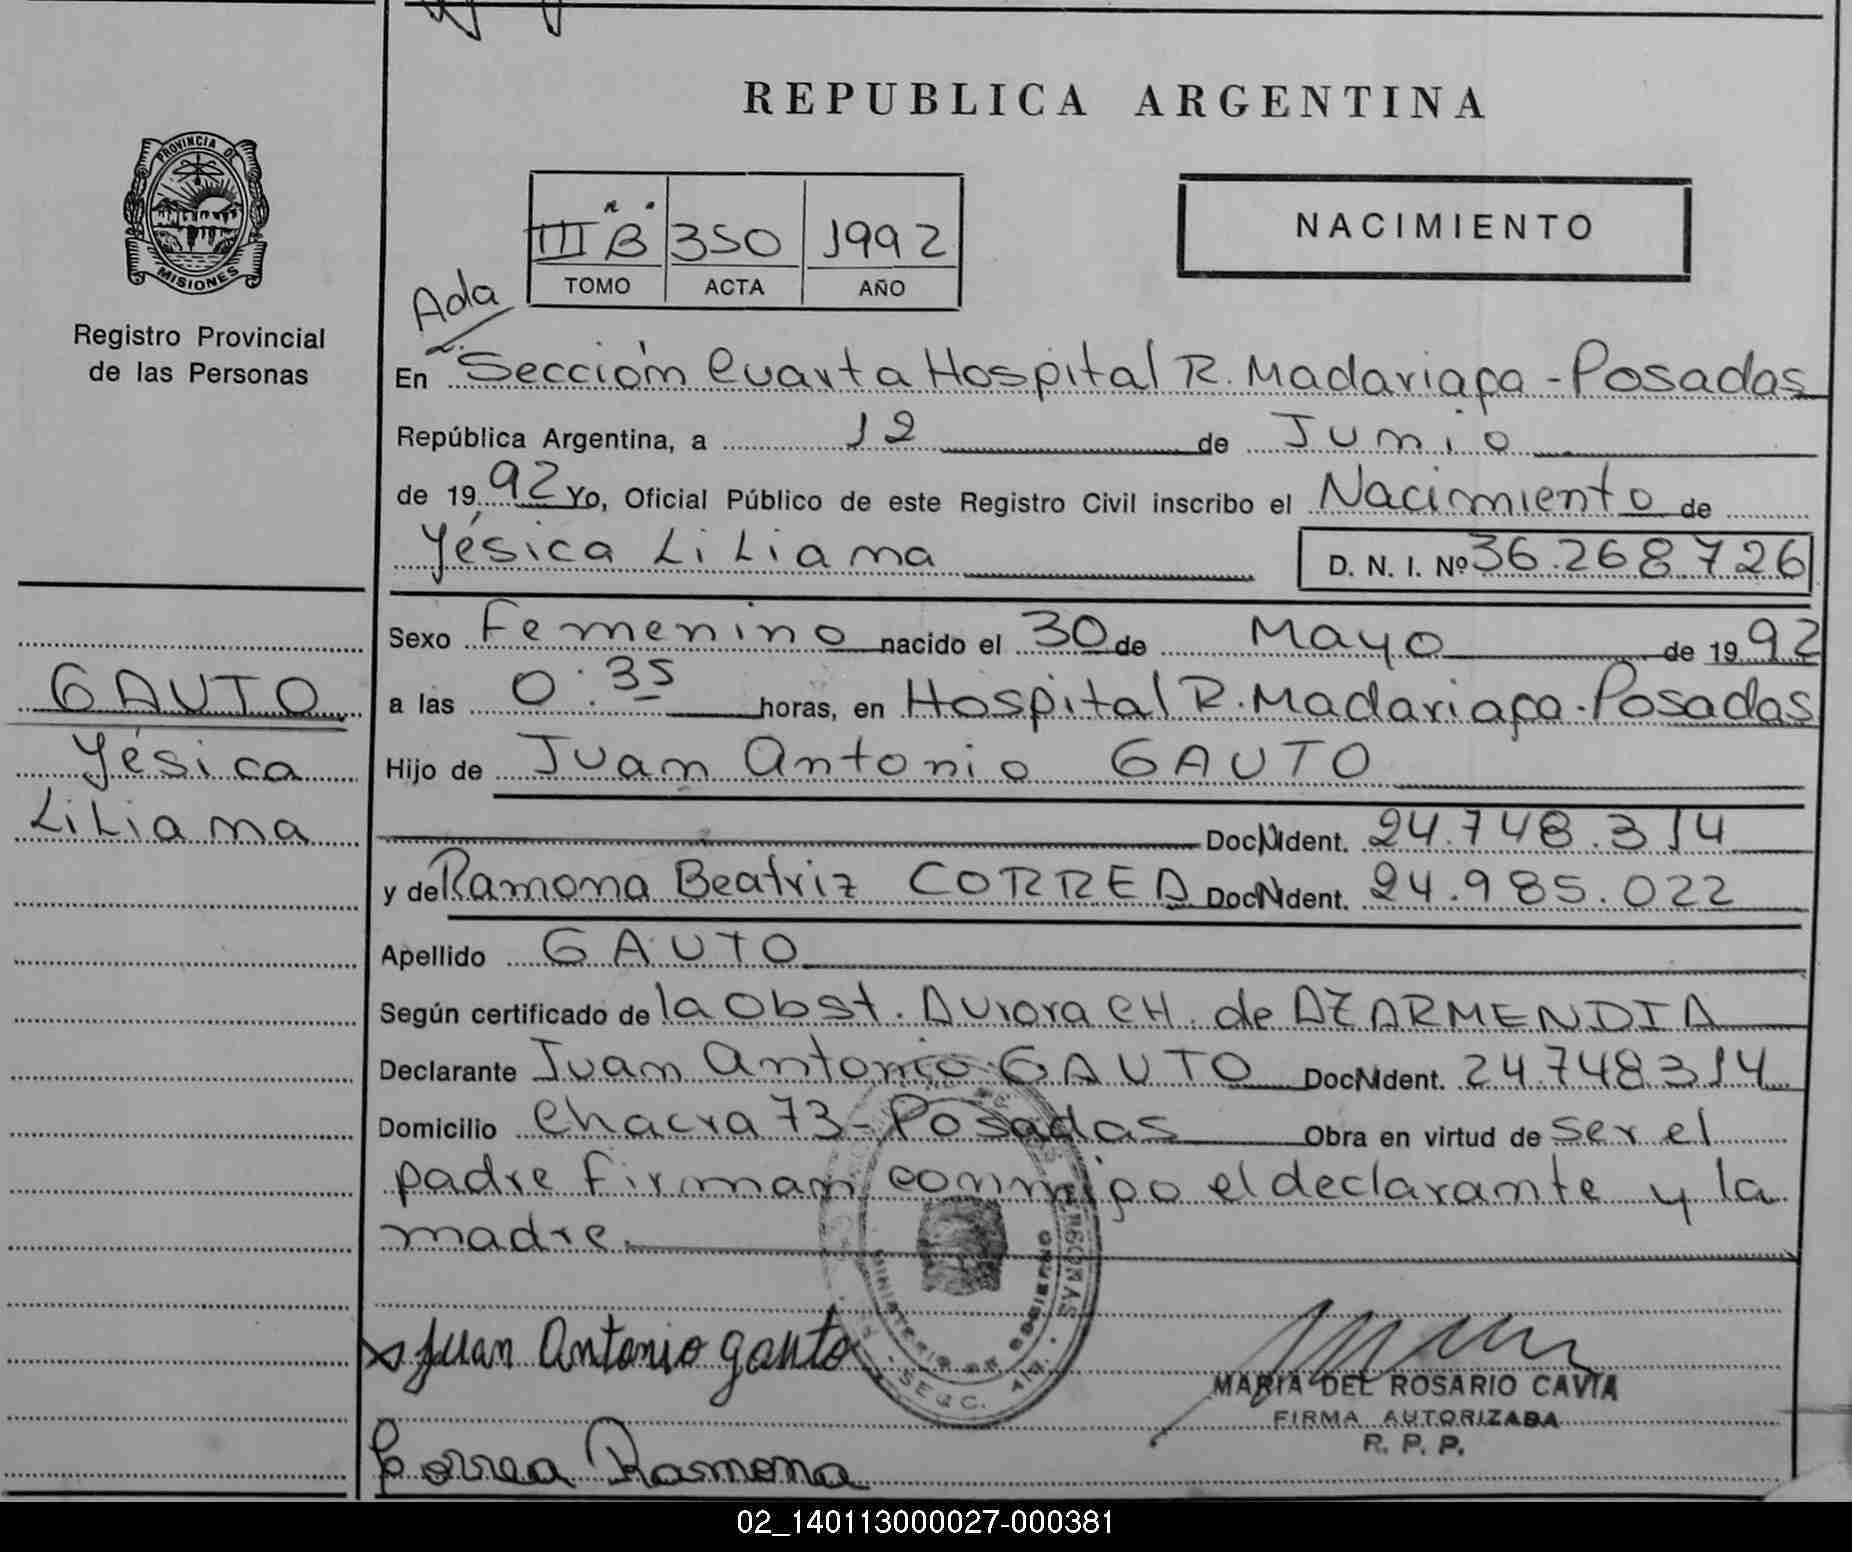 REPUBLICA ARGENTINA
PROVINCIA DE
MISIONES
Registro Provincial
de las Personas
III "B" 350 1992
TOMO ACTA AÑO
NACIMIENTO
Ada
En Sección Cuarta Hospital R. Madariaga - Posadas
República Argentina, a 12 de Junio
de 1992 Yo, Oficial Público de este Registro Civil inscribo el Nacimiento de
Yésica Liliana D. N. I. Nº 36.268.726
Sexo Femenino nacido el 30 de Mayo de 1992
a las 0:35 horas, en Hospital R. Madariaga - Posadas
Hijo de Juan Antonio GAUTO
Doc. N. Ident. 24.748.314
y de Ramona Beatriz CORREA Doc N Ident. 24.985.022
Apellido GAUTO
Según certificado de la Obst. Aurora CH. de AZARMENDIA
Declarante Juan Antonio GAUTO Doc N Ident. 24748314
Domicilio Chacra 73 - Posadas Obra en virtud de ser el
padre firman conmigo el declarante y la
madre.
GAUTO
Yésica
Liliana
Juan Antonio gauto
MARIA DEL ROSARIO CAVIA
FIRMA AUTORIZADA
R. P. P.
Correa Ramona
MINISTERIO DE GOBIERNO
PERSONAS
02_140113000027-000381